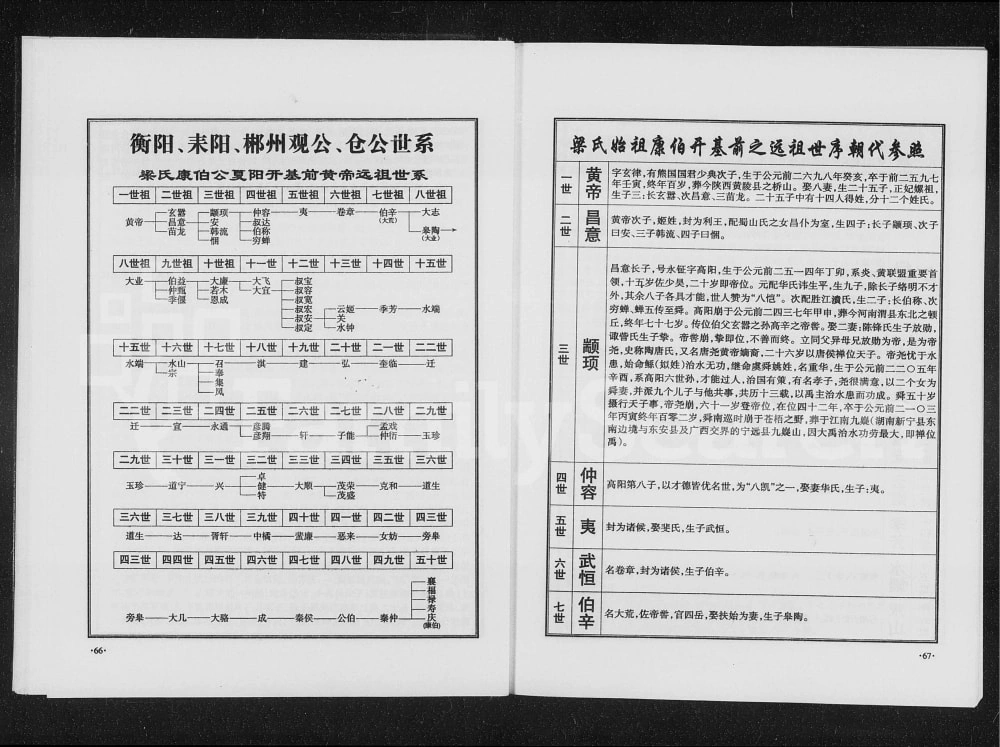 衡阳、耒阳、郴州观公、仓公世系
梁氏康伯公夏阳开基前黄帝远祖世系
一世祖 二世祖 三世祖 四世祖 五世祖 六世祖 七世祖 八世祖
黄帝 玄嚣 颛顼 仲容 夷 卷章 伯辛 大志
昌意 安 叔达 (大荒)
苗龙 韩流 伯称 皋陶
悃 穷蝉 (大业)
八世祖 九世祖 十世祖 十一世 十二世 十三世 十四世 十五世
大业 伯益 大廉 大飞 叔宝
仲甄 若木 大宜 叔容
季偃 恩成 叔宽
叔宏 云姬 季芳 水端
叔安 关
叔定 水钟
十五世 十六世 十七世 十八世 十九世 二十世 二一世 二二世
水端 水山 召 淇 建 弘 奎临 迁
宗 奉
集
凤
二二世 二三世 二四世 二五世 二六世 二七世 二八世 二九世
迁 宣 永通 彦腾 孟戏
彦翔 轩 子能 仲衍 玉珍
二九世 三十世 三一世 三二世 三三世 三四世 三五世 三六世
玉珍 道宁 兴 卓
健 大顺 茂荣 克和 道生
特 茂盛
三六世 三七世 三八世 三九世 四十世 四一世 四二世 四三世
道生 达 胥轩 中橘 蜚廉 恶来 女妨 旁皋
四三世 四四世 四五世 四六世 四七世 四八世 四九世 五十世
襄
福
禄
寿
旁皋 大几 大骆 成 秦侯 公伯 秦仲 庆
(康伯)
·66·
梁氏始祖康伯开基前之远祖世序朝代参照
一世 黄帝
字玄律,有熊国国君少典次子,生于公元前二六九八年癸亥,卒于前二五九七
年壬寅,终年百岁,葬今陕西黄陵县之桥山。娶八妻,生二十五子,正妃嫘祖,
生子三:长玄嚣、次昌意、三苗龙。二十五子中有十四人得姓,分十二个姓氏。
二世 昌意
黄帝次子,姬姓,封为利王,配蜀山氏之女昌仆为室,生四子:长子颛顼、次子
曰安、三子韩流、四子曰悃。
三世 颛顼
昌意长子,号永钲字高阳,生于公元前二五一四年丁卯,系炎、黄联盟重要首
领,十五岁佐少昊,二十岁即帝位。元配华氏讳生平,生九子,除长子络明不才
外,其余八子各具才能,世人赞为“八恺”。次配胜江濆氏,生二子:长伯称、次
穷蝉、蝉五传至舜。高阳崩于公元前二四三七年甲申,葬今河南渭县东北之顿
丘,终年七十七岁。传位伯父玄嚣之孙高辛之帝喾。娶二妻:陈锋氏生子放勋,
诹訾氏生子挚。帝喾崩,挚即位,不善而终。立同父异母兄放勋为帝,是为帝
尧,史称陶唐氏,又名唐尧黄帝嫡裔,二十六岁以唐侯禅位天子。帝尧忧于水
患,始命鲧(姒姓)治水无功,继命虞舜姚姓,名重华,生于公元前二二〇五年
辛酉,系高阳六世孙,才能过人,治国有策,有名孝子,尧很满意,以二个女为
舜妻,并派九个儿子与他共事,共历十三载,以禹主治水患而功成。舜五十岁
摄行天子事,帝尧崩,六十一岁登帝位,在位四十二年,卒于公元前二一〇三
年丙寅终年百零二岁,舜南巡时崩于苍梧之野,葬于江南九嶷(湖南新宁县东
南边境与东安县及广西交界的宁远县九嶷山,因大禹治水功劳最大,即禅位
禹)。
四世 仲容
高阳第八子,以才德皆优名世,为“八凯”之一,娶妻华氏,生子:夷。
五世 夷
封为诸候,娶斐氏,生子武恒。
六世 武恒
名卷章,封为诸侯,生子伯辛。
七世 伯辛
名大荒,佐帝喾,官四岳,娶扶始为妻,生子皋陶。
·67·